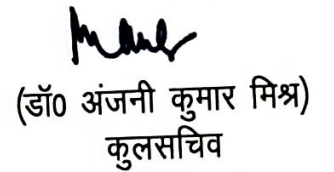 (डॉ0 अंजनी कुमार मिश्र)
कुलसचिव